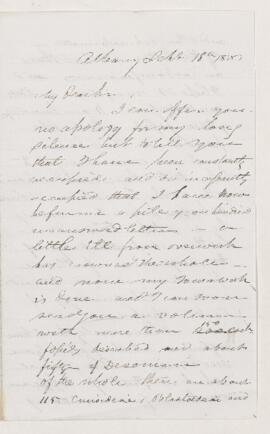 Albany Feb 18th
My Dear Sir
I can offer you
no apology for my long
silence but to tell you
that I have been constantly
occupied and so incessantly
occupied that I have now
before me a pile of one hundred
unanswered letters — a
little ill from overwork
has crowned the whole —
and now my Iowa work
is done and I can now
send you a volume
with more than 150
fossils described and about
fifty of
of the whole there are about
115 Crinoidea, Blastoidea and